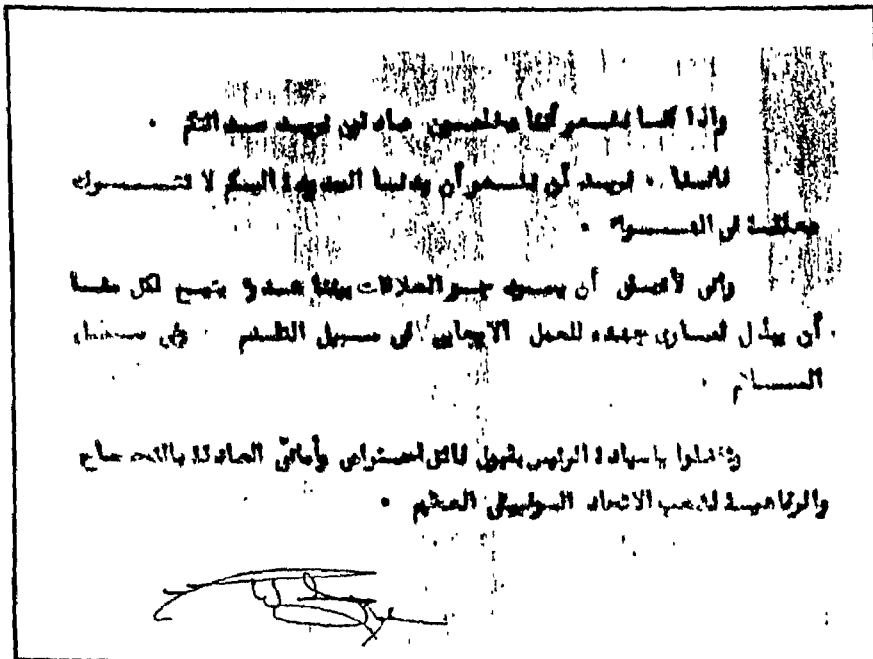 واذا كنا نشعر أننا مخلصين صادقين نريد صداقتكم .
فاننا . نريد أن نشعر أن يدنا الممدودة اليكم لا تتــرك
معلقة في الهــواء .
واني لأتمنى أن يسود جو العلاقات بيننا هدوء يتيح لكل منا
أن يبذل قصارى جهده للعمل الايجابي في سبيل التقدم وفي سبيل
الســلام .
وتفضلوا ياسيادة الرئيس بقبول فائق احترامي وأماني الصادقة بالنجــاح
والرفاهيــة لشعب الاتحاد السوفييتي العظيم .